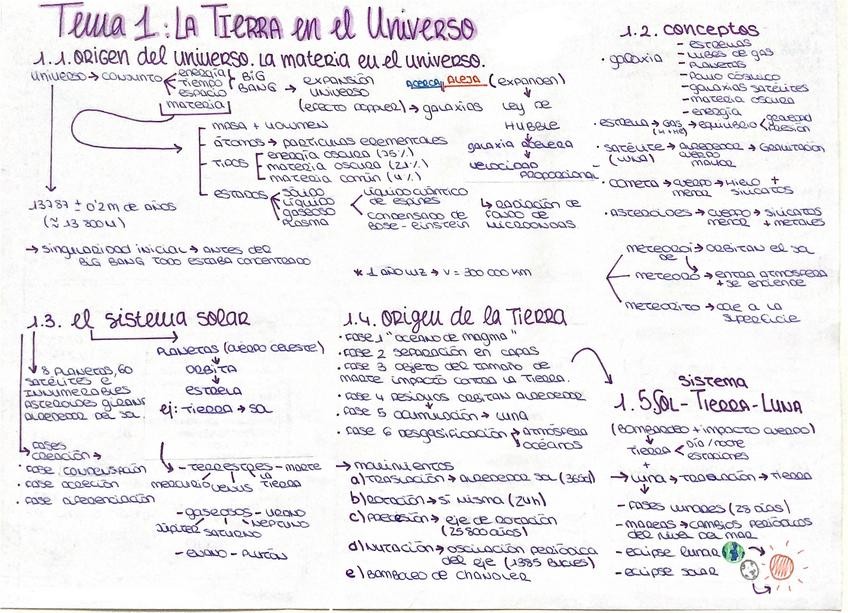 Tema 1: LA TIERRA en el Universo
1.1. ORIGEN del universo. La materia en el universo.
Universo → conjunto
energía
tiempo
espacio
materia
BIG
BANG →
expansión
universo
(efecto doppler) → galaxias
ACERCA ALEJA (expanden)
Ley de
HUBBLE
galaxia acelera
velocidad
proporcional
↳ Radiación de
fondo de
microondas
masa + volumen
átomos → partículas elementales
tipos
energía oscura (75%)
materia oscura (21%)
materia común (4%)
estados
sólido
líquido
gaseoso
plasma
líquido cuántico
de espines
condensado de
Bose-Einstein
13787 ± 0'2m de años
(≈ 13 800M)
→ singularidad inicial → antes del
BIG BANG todo estaba concentrado
* 1 año luz → v = 300 000 km
1.2. conceptos
· galaxia
- estrellas
- nubes de gas
- planetas
- polvo cósmico
- galaxias satélites
- materia oscura
- energía
· estrella → gas → equilibrio
(H+He)
gravedad
presión
· satélite → alrededor → gravitación
(LUNA) cuerpo
mayor
· cometa → cuerpo → hielo +
menor silicatos
· asteroides → cuerpo → silicatos
menor + metales
meteoroi → orbitan el sol
de
meteoro → entra atmósfera
+ se enciende
meteorito → cae a la
superficie
1.3. el sistema solar
8 planetas, 60
satélites e
innumerables
asteroides giran
alrededor del sol.
Planetas (cuerpo celeste)
órbita
estrella
ej: tierra → sol
fases
creación →
· fase condensación
· fase acreción
· fase diferenciación
- terrestres - marte
mercurio venus tierra
- gaseosos - urano
júpiter saturno neptuno
- enano - plutón
1.4. origen de la Tierra
· fase 1 "océano de magma"
· fase 2 separación en capas
· fase 3 objeto del tamaño de
marte impactó contra la tierra.
· fase 4 residuos orbitan alrededor
· fase 5 acumulación → luna
· fase 6 desgasificación
atmósfera
océanos
→ movimientos
a) traslación → alrededor sol (365d)
b) rotación → sí misma (24h)
c) precesión → eje de rotación
(25 800 años)
d) nutación → oscilación periódica
del eje (1385 bucles)
e) bamboleo de Chandler
sistema
1.5 Sol-Tierra-Luna
(bombardeo + impacto cuerpo)
tierra
día/noche
estaciones
+
luna → traslación → tierra
- fases lunares (28 días)
- mareas → cambios periódicos
del nivel del mar
- eclipse lunar
- eclipse solar